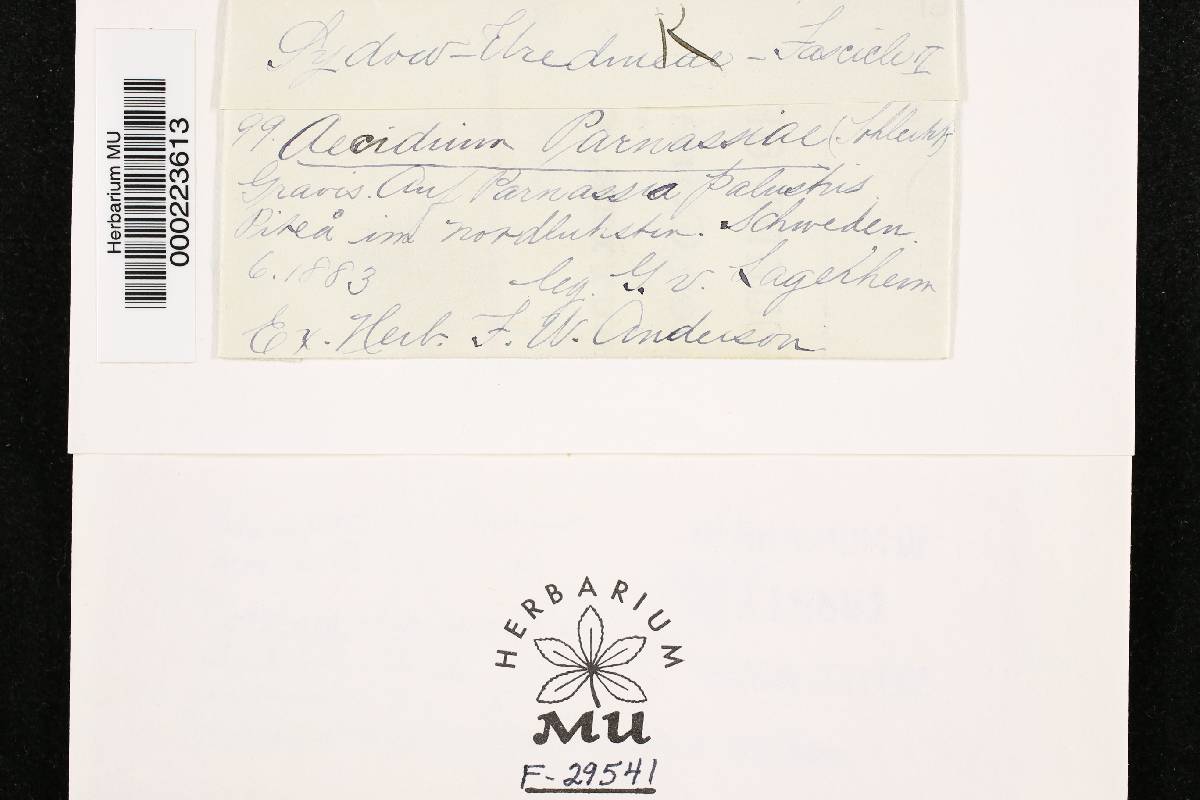 Sydow-Uredineae - Fascicle II
K
99. Aecidium Parnassiae (Schlecht)
Gravis. Auf Parnassia palustris
Piteå im nordlichsten. Schweden.
6. 1883 leg. G. v. Lagerheim
Ex. Herb. F. W. Anderson
Herbarium MU
000223613
HERBARIUM
MU
F-29541